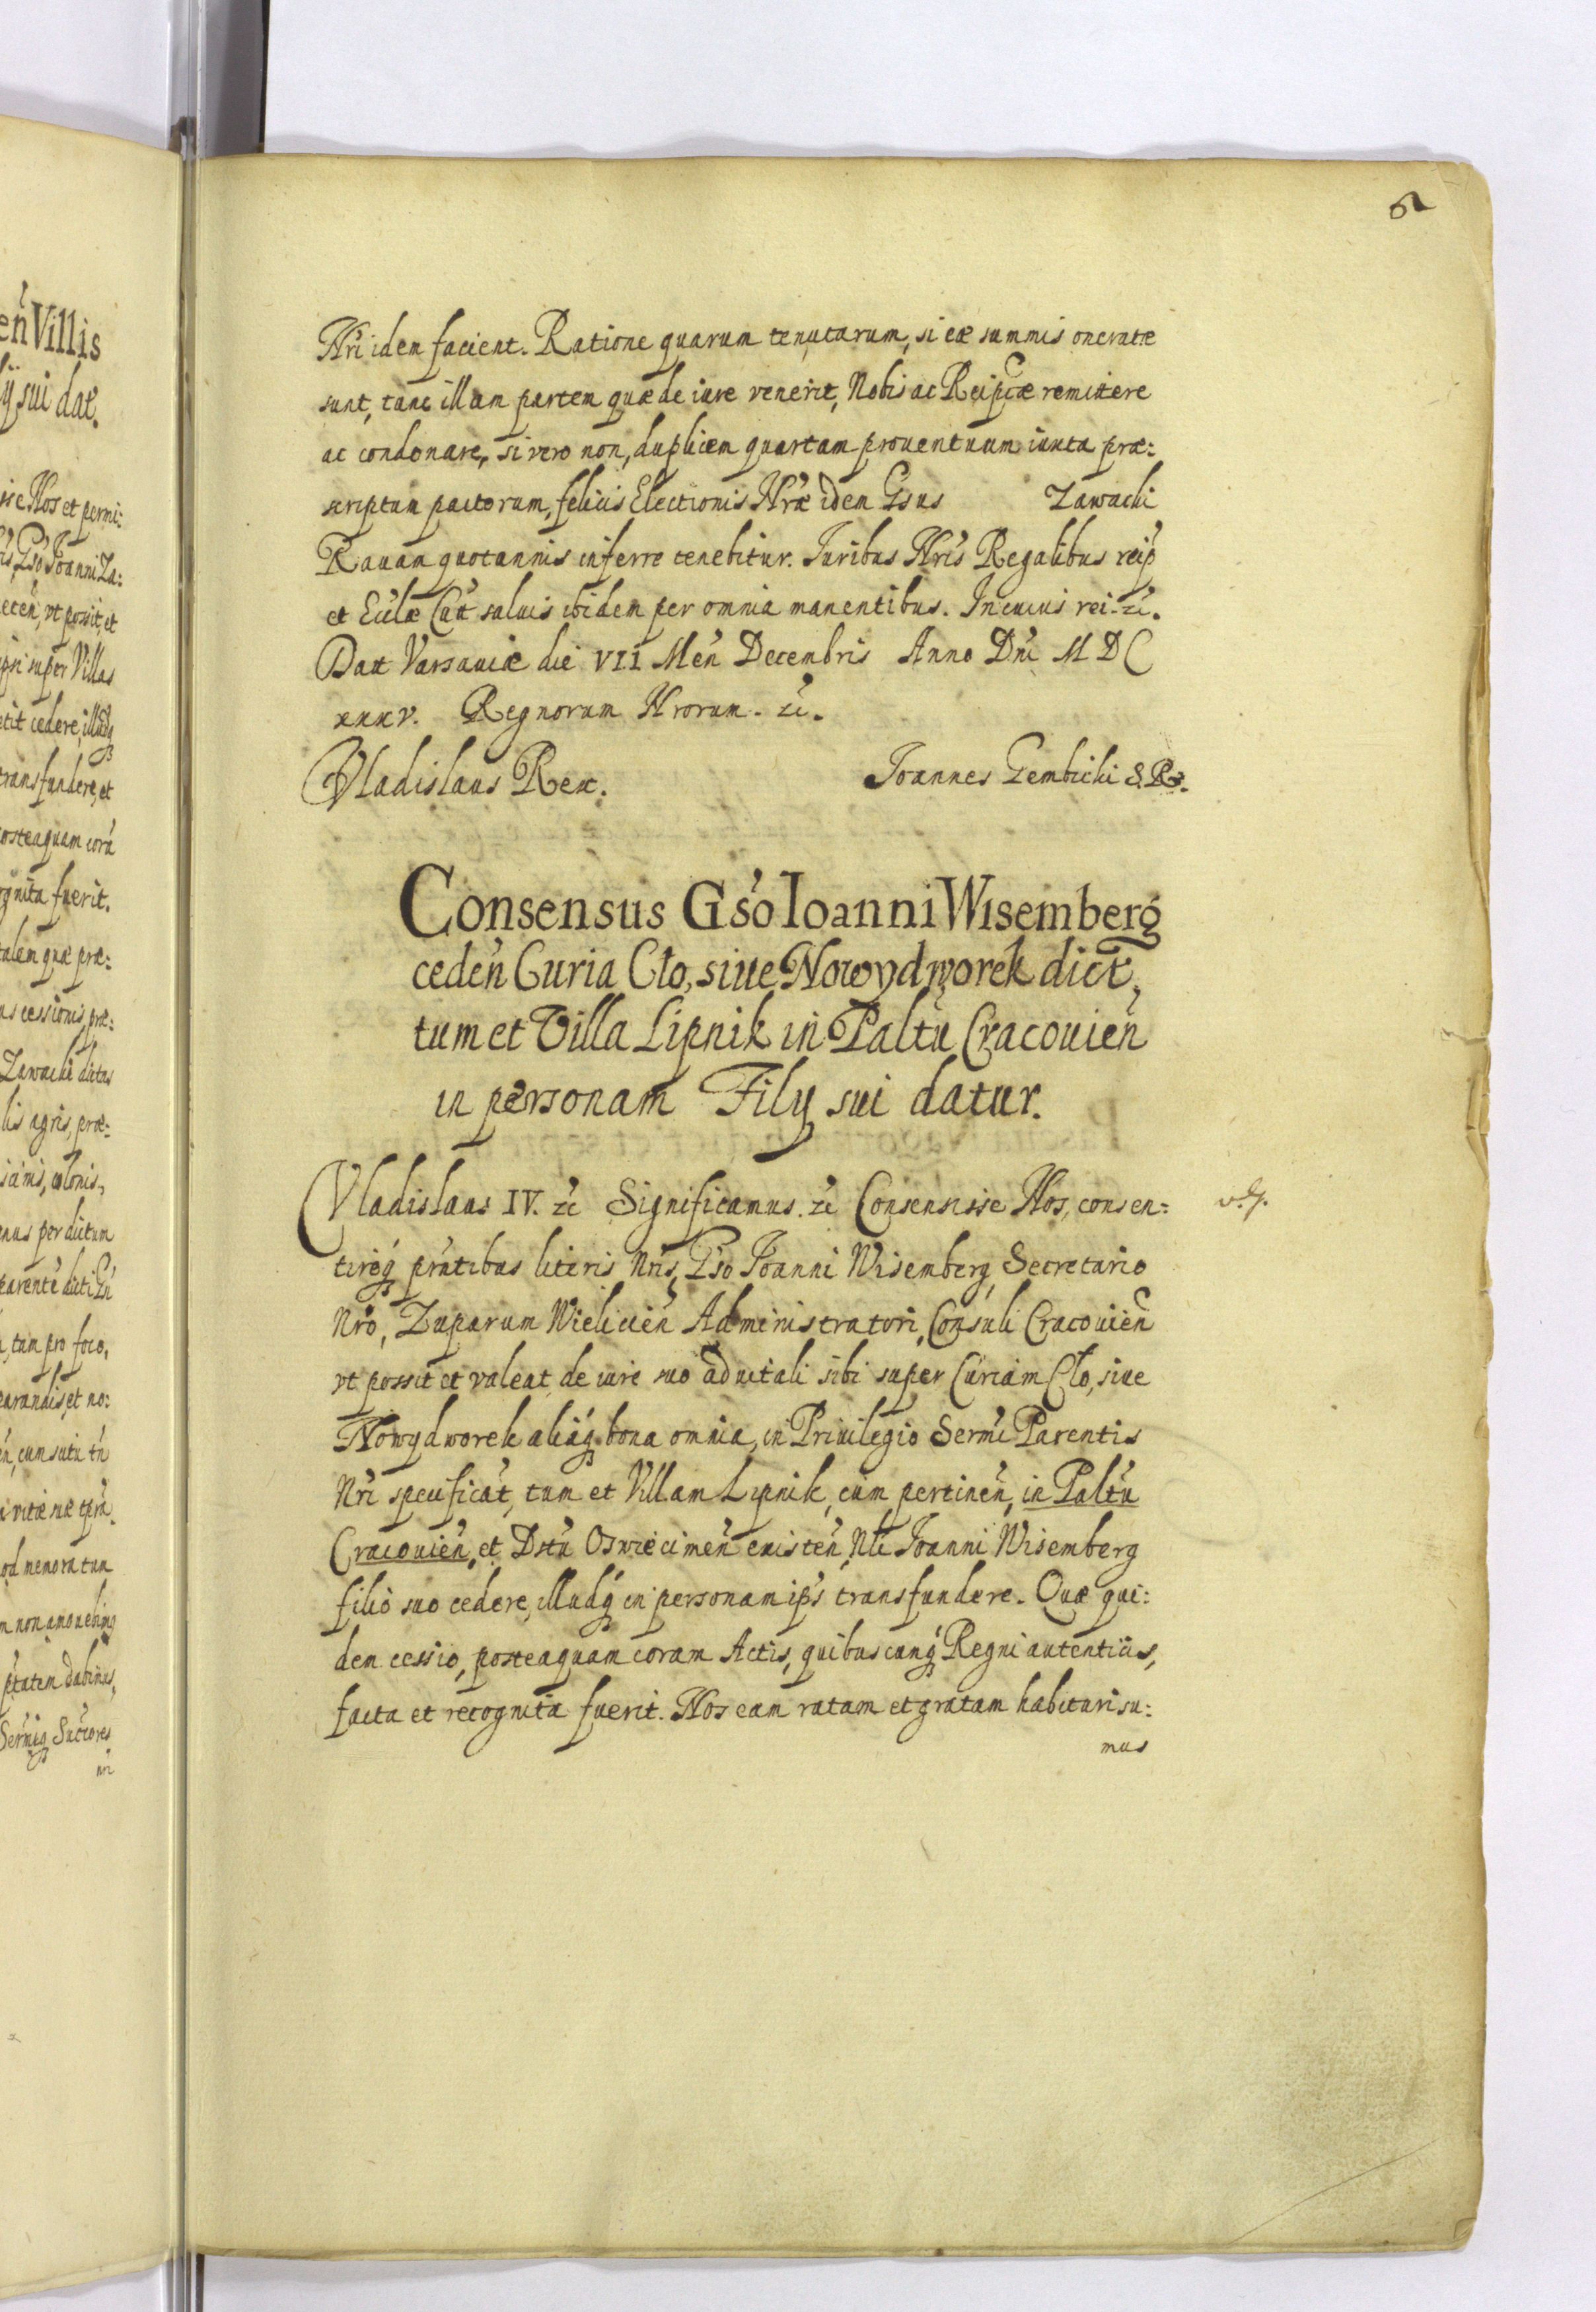 en̄ Villis
ij sui dat̄.
sse Nos et permi:
Gso Joanni Za:
eten̄, vt possit, et
ipsi super Villas
etit cedere, illudq́
transfundere, et
posteaquam corā
ognita fuerit.
talem quæ præ:
us cessionis præ:
Zawacki dictus
lis agris, præ:
colonis,
enus per dictum
parente dicti Gn̄
tam pro foco,
parandis, et no:
od memoratum
m non amovebimꝰ
ptatem dabimus,
Sermiq́ Succores
nri
61
Nr̄i idem facient. Ratione quarum tenutarum, si eæ summis oneratæ
sunt, tanc̄ illam partem quæ de iure venerit, Nobis ac Reipc̄æ remittere
ac condonare, si vero non, duplicem quartam prouentuum iuxta præ:
scriptum pactorum, felicis Electionis Nr̄æ idem Gsus Zawacki
Rauam quotannis inferre tenebitur. Juribus Nr̄is Regalibus reip̄
et Ecclæ Cat̄ saluis ibidem per omnia manentibus. In cuius rei. zc̄.
Dat̄ Varsauiæ die VII Men̄ Decembris Anno Dn̄i M D C
xxxv. Regnorum Nrorum. zc̄.
Vladislaus Rex. Joannes Gembicki S. R.
Consensus Gs̄o Ioanni Wisemberg
ceden̄ Curia Cło, siue Nowydworek dict̄,
tum et Villa Lipnik in Palt̄u Cracouien̄
in personam Filÿ sui datur.
Vladislaus IV. zc̄ Significamus. zc̄ Consensisse Nos, consen:
tireq́ prn̄tibus literis Nr̄is, Gs̄o Joanni Wisemberg Secretario
Nr̄o, Zuparum Wielicien̄ Administratori, Consuli Cracouien̄
vt possit et valeat de iure suo aduitali sibi super Curiam Cło, siue
Nowydworek aliaq́ bona omnia, in Priuilegio Sermi Parentis
Nr̄i specificat̄, tum et Villam Lipnik, cum pertinen̄, in Palt̄u
Cracouien̄, et Dst̄u Oswiecimen̄ existen̄, Nli Joanni Wisemberg
filio suo cedere, illudq́ in personam ips̄ transfundere. Quæ qui:
dem cessio, posteaquam coram Actis, quibuscunq́ Regni autenticis,
facta et recognita fuerit. Nos eam ratam et gratam habituri su:
mus